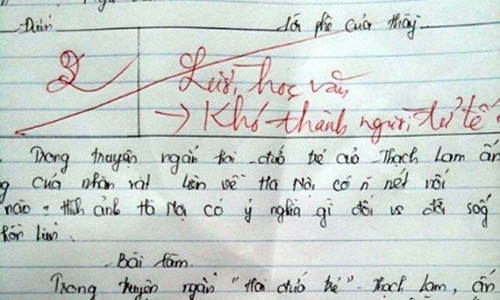 Điểm Lời phê của thầy
2 Lười học văn
→ Khó thành người tử tế
Trong truyện ngắn hai đứa trẻ của Thạch Lam ấn
g của nhân vật Liên về Hà Nội có n nét nổi
nào. Hình ảnh Hà Nội có ý nghĩa gì đối vs đời sống
hồn Liên.
Bài làm
Trong truyện ngắn "Hai đứa trẻ" Thạch Lam, ấn